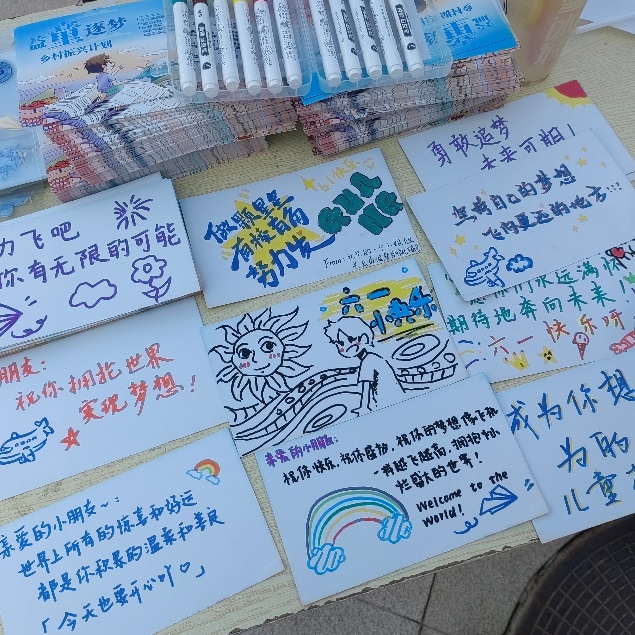 益童逐梦
乡村振兴计划
勇敢追梦
未来可期！
坚持自己的梦想
飞向更远的地方!!!
力飞吧
你有无限的可能
做颗星星
有棱有角
努力发
From:
六一
快乐
永远满怀
期待地奔向未来！
六一快乐呀
朋友:
祝你拥抱世界
实现梦想！
亲爱的小朋友:
祝你快乐,祝你
祝你的梦想像飞机
一样越飞越高,拥抱到
烂漫的世界！
Welcome to the
World!
成为你想
为的
儿童
亲爱的小朋友~:
世界上所有的惊喜和好运
都是你积累的温柔和善良
「今天也要开心吖♡」